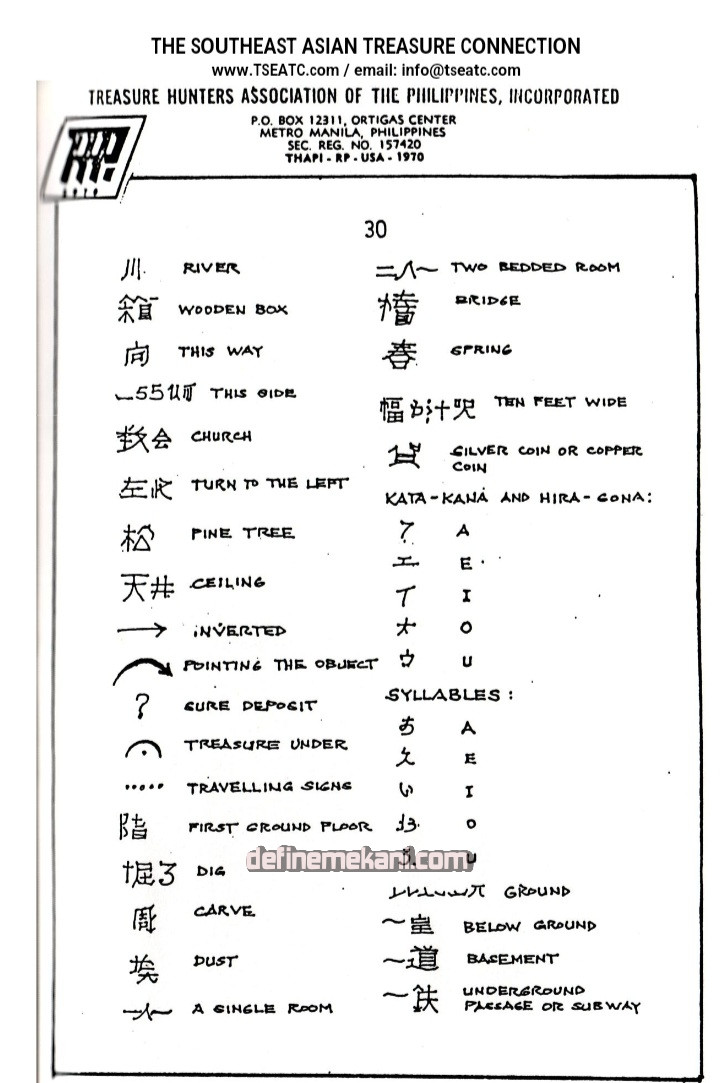 THE SOUTHEAST ASIAN TREASURE CONNECTION
www.TSEATC.com / email: info@tseatc.com
TREASURE HUNTERS ASSOCIATION OF THE PHILIPPINES, INCORPORATED
P.O. BOX 12311, ORTIGAS CENTER
METRO MANILA, PHILIPPINES
SEC. REG. NO. 157420
THAPI - RP - USA - 1970
30
川 RIVER
箱 WOODEN BOX
向 THIS WAY
THIS SIDE
教会 CHURCH
左 TURN TO THE LEFT
松 PINE TREE
天井 CEILING
→ INVERTED
POINTING THE OBJECT
? SURE DEPOSIT
TREASURE UNDER
..... TRAVELLING SIGNS
階 FIRST GROUND FLOOR
掘る DIG
彫 CARVE
埃 DUST
A SINGLE ROOM
TWO BEDDED ROOM
BRIDGE
春 SPRING
幅 TEN FEET WIDE
SILVER COIN OR COPPER
COIN
KATA-KANA AND HIRA-GONA:
ア A
エ E
イ I
オ O
ウ U
SYLLABLES:
あ A
え E
い I
お O
U
GROUND
BELOW GROUND
道 BASEMENT
鉄 UNDERGROUND
PASSAGE OR SUBWAY
definemekani.com